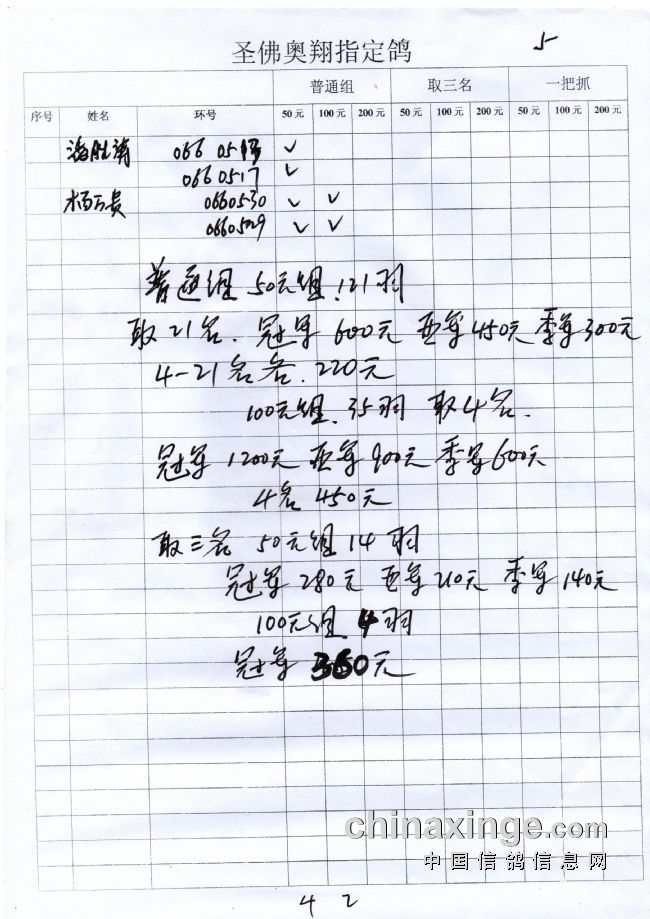 5
圣佛奥翔指定鸽
普通组 取三名 一把抓
序号 姓名 环号 50元 100元 200元 50元 100元 200元 50元 100元 200元
0660513 ✓
0660517 ✓
杨万贵 0660530 ✓ ✓
0660529 ✓ ✓
普通组 50元组.121羽
取21名.冠军600元 亚军450元 季军300元
4-21名各.220元
100元组.35羽 取4名.
冠军1200元 亚军900元 季军600元
4名450元
取三名 50元组14羽
冠军280元 亚军210元 季军140元
100元组.4羽
冠军360元
chinaxinge.com
中国信鸽信息网
42